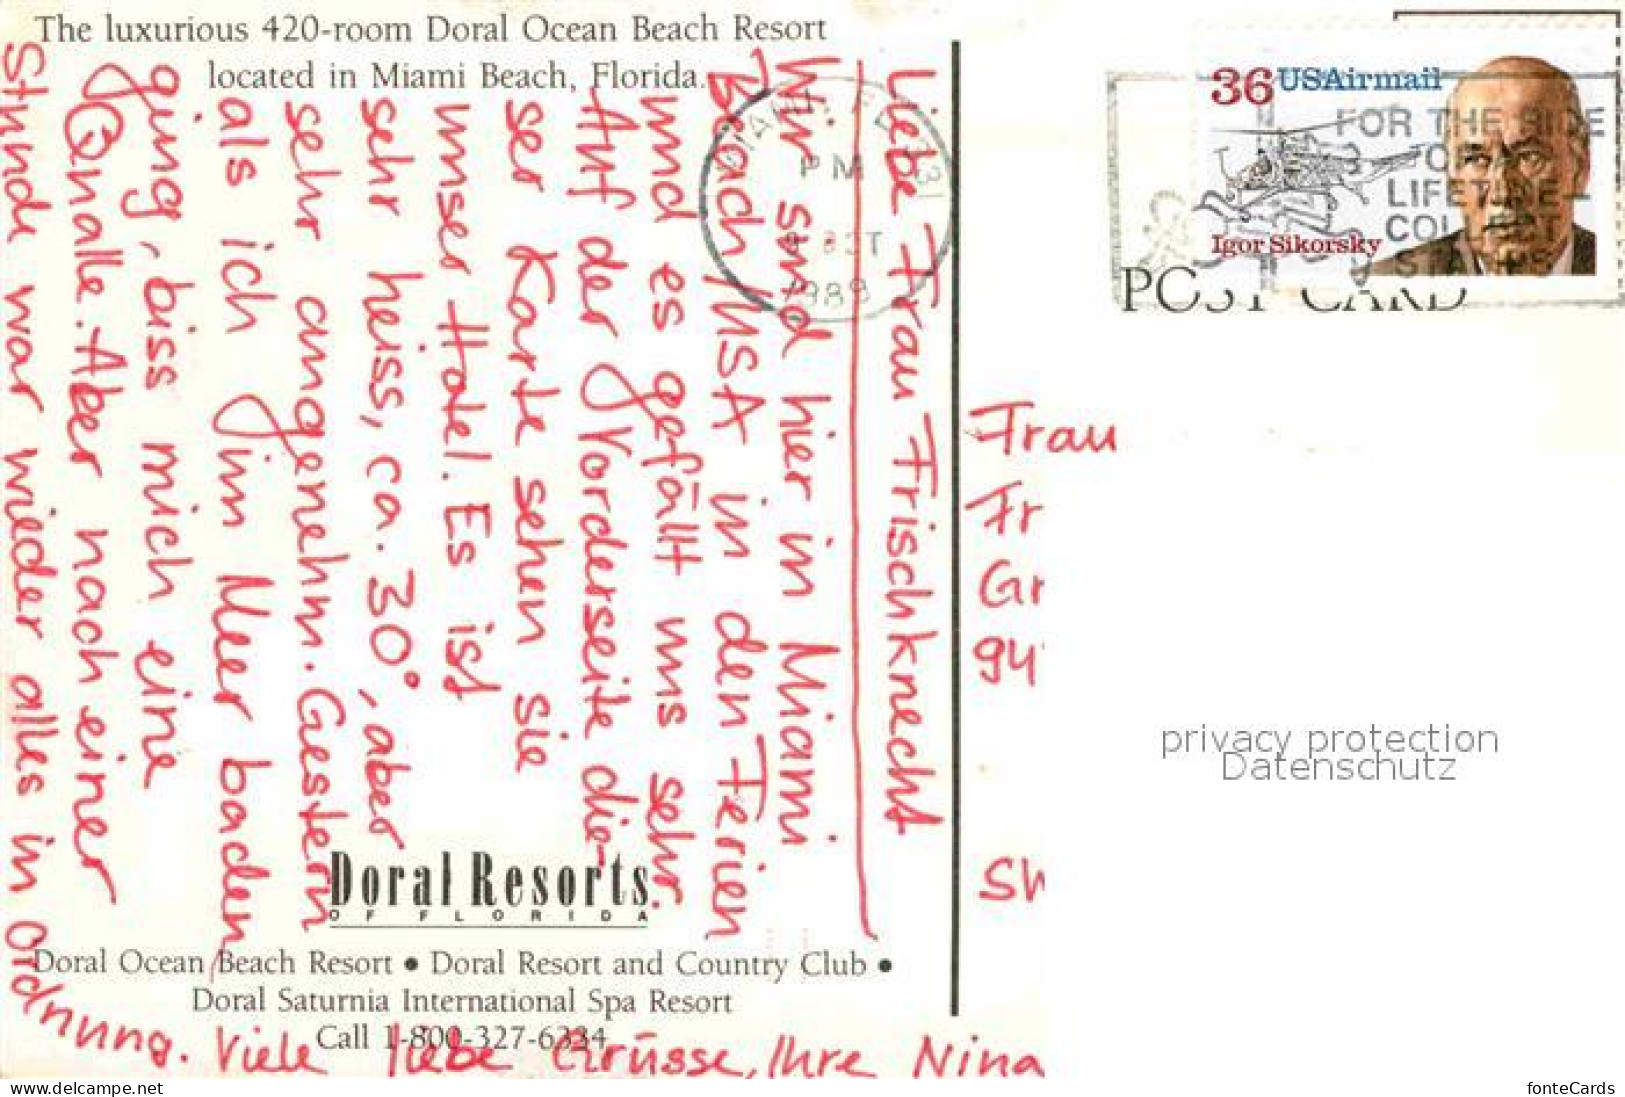 The luxurious 420-room Doral Ocean Beach Resort
located in Miami Beach, Florida.
Liebe Frau Frischknecht
Wir sind hier in Miami
Beach/USA in den Ferien
und es gefällt uns sehr.
Auf der Vorderseite die-
ser Karte sehen Sie
unser Hotel. Es ist
sehr heiss, ca. 30°, aber
sehr angenehm. Gestern
als ich im Meer baden
ging, biss mich eine
Qualle. Aber nach einer
Stunde war wieder alles in Ordnung. Viele liebe Grüsse, Ihre Nina
Doral Resorts
OF FLORIDA
Doral Ocean Beach Resort • Doral Resort and Country Club •
Doral Saturnia International Spa Resort
Call 1-800-327-6334
MIAMI, FL 331
PM
OCT
1988
36 USAirmail
Igor Sikorsky
FOR THE
LIFETIME
COLLECT
STAMPS
POST CARD
Frau
Fr
Gr
94
SW
privacy protection
Datenschutz
fonteCards
delcampe.net